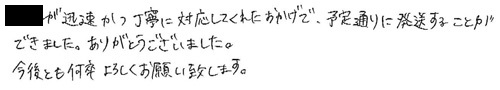 が迅速かつ丁寧に対応してくれたおかげで、予定通りに発送することが
できました。ありがとうございました。
今後とも何卒よろしくお願い致します。